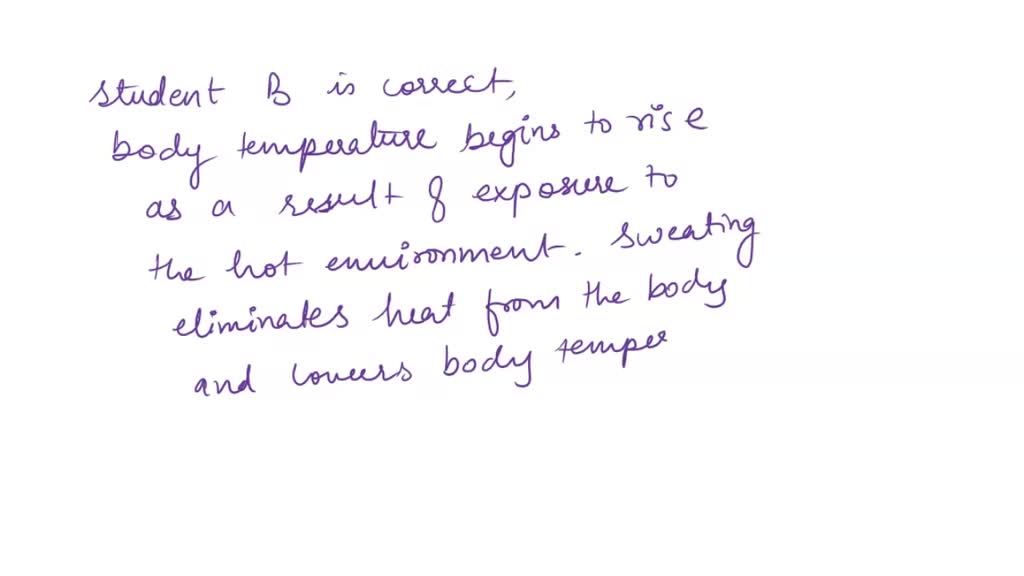 student B is correct,
body temperature begins to rise
as a result of exposure to
the hot environment. sweating
eliminates heat from the body
and lowers body temper